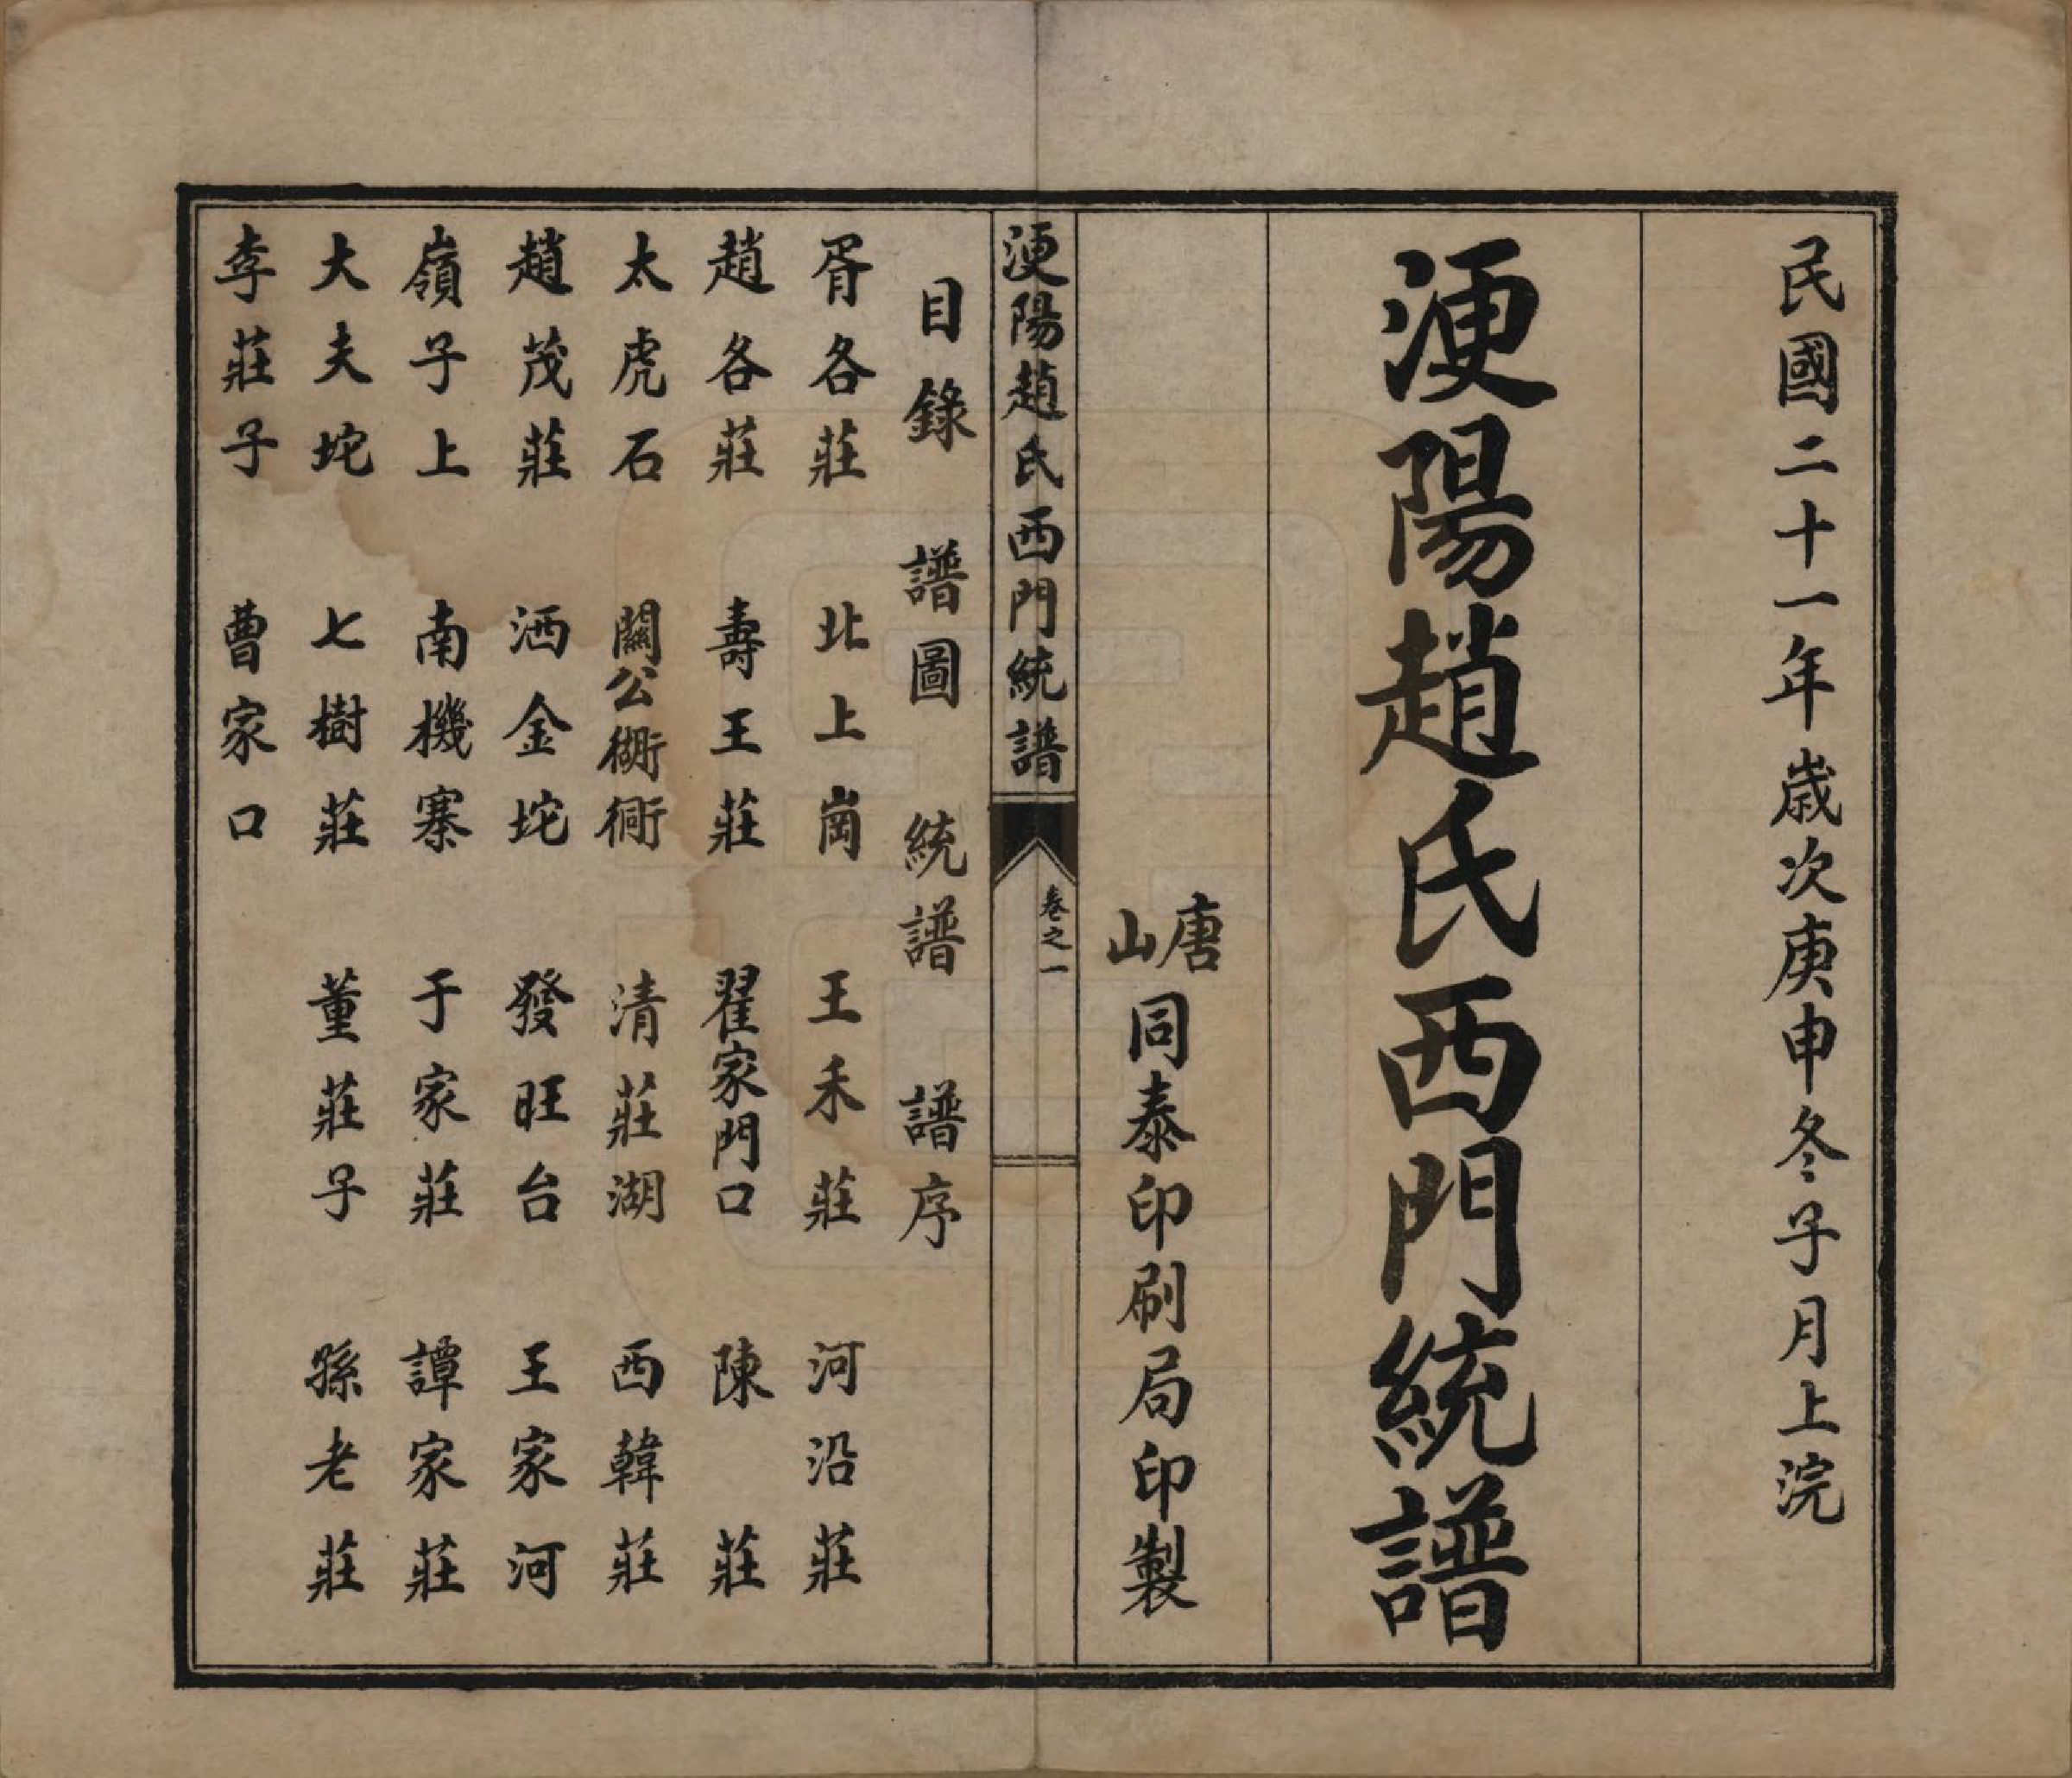 民國二十一年歲次庚申冬子月上浣
浭陽趙氏西門統譜
唐山同泰印刷局印製
浭陽趙氏西門統譜 卷之一
目錄 譜圖 統譜 譜序
胥各莊 北上崗 王禾莊 河沿莊
趙各莊 壽王莊 翟家門口 陳莊
太虎石 關公衚衕 清莊湖 西韓莊
趙茂莊 洒金坨 發旺台 王家河
嶺子上 南機寨 于家莊 譚家莊
大夫坨 七樹莊 董莊子 孫老莊
李莊子 曹家口